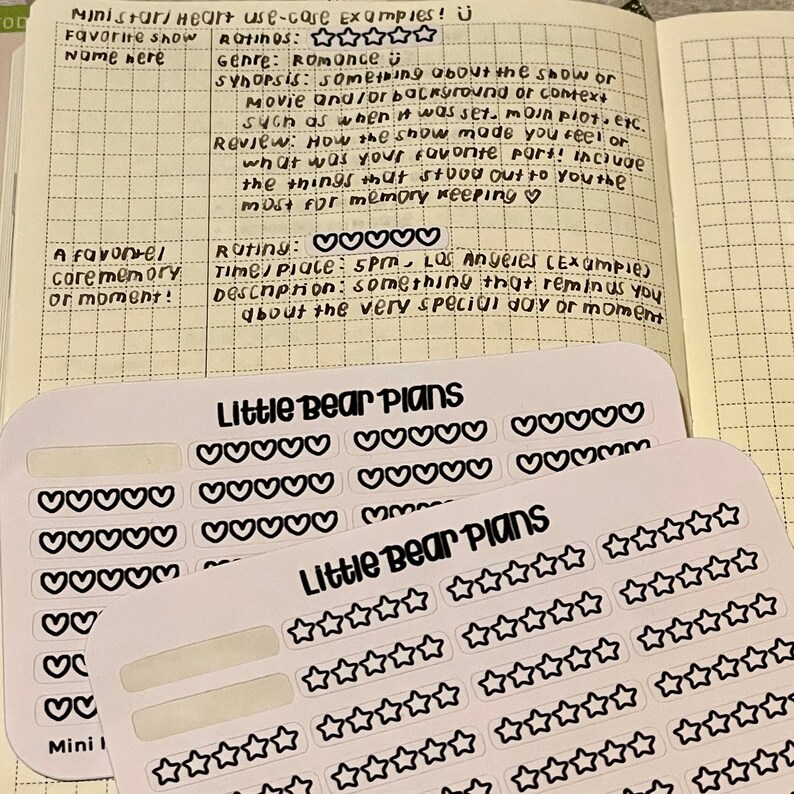 Mini star/Heart use-case Examples! Ü
Favorite show
Name here
Ratings:
Genre: Romance Ü
Synopsis: something about the show or
movie and/or background or context
such as when it was set, main plot, etc.
Review: How the show made you feel or
what was your favorite part! Include
the things that stood out to you the
most for memory keeping ♡
A favorite/
core memory
or moment!
Rating:
Time/Place: 5pm, Los Angeles (Example)
Description: something that reminds you
about the very special day or moment
Little Bear Plans
Mini
Little Bear Plans